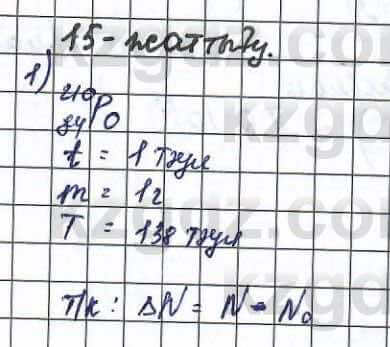 15-жаттығу.
1)
²¹⁰₈₄Po
t = 1 тәул
m = 1г
T = 138 тәул
Т/к: ΔN = N - N₀